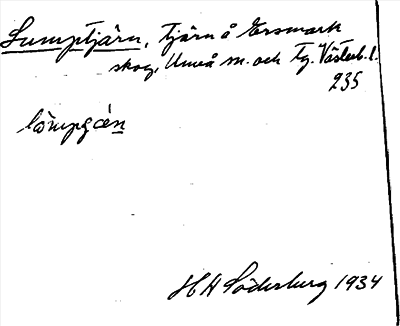 Lumptjärn, tjärn å Ersmark
skog, Umeå sn. och tg. Västerb. l.
235
lömpcén
H H Söderberg 1934